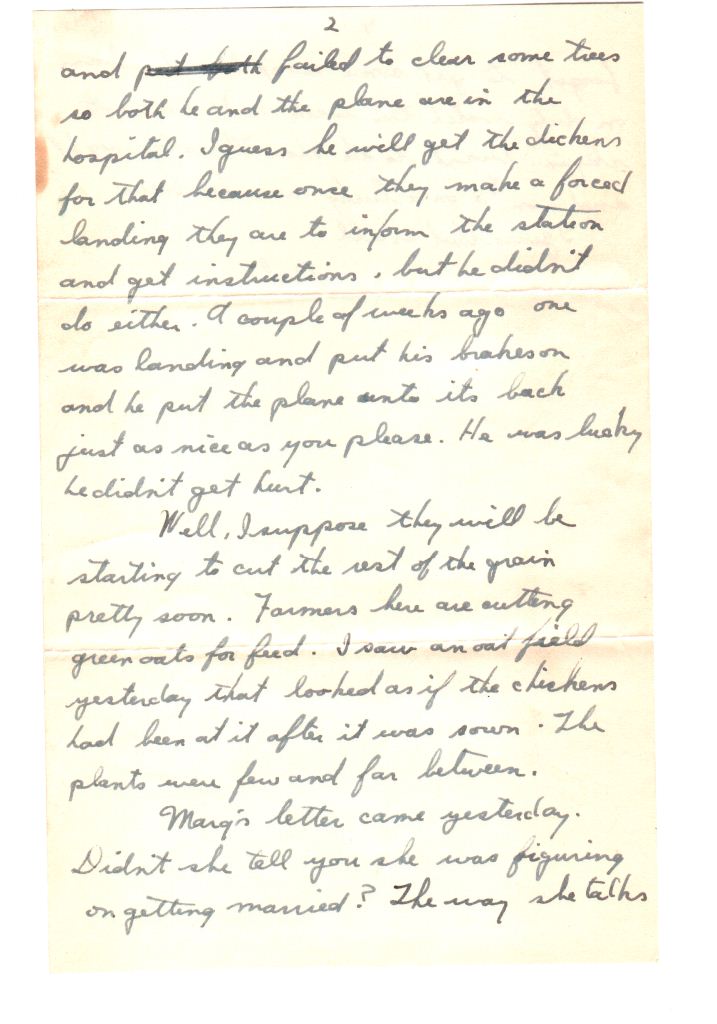 2
and put both failed to clear some trees
so both he and the plane are in the
hospital. I guess he will get the dickens
for that because once they make a forced
landing they are to inform the station
and get instructions, but he didn't
do either. A couple of weeks ago one
was landing and put his brakes on
and he put the plane onto its back
just as nice as you please. He was lucky
he didn't get hurt.
Well, I suppose they will be
starting to cut the rest of the grain
pretty soon. Farmers here are cutting
green oats for feed. I saw an oat field
yesterday that looked as if the chickens
had been at it after it was sown. The
plants were few and far between.
Marg's letter came yesterday.
Didn't she tell you she was figuring
on getting married? The way she talks